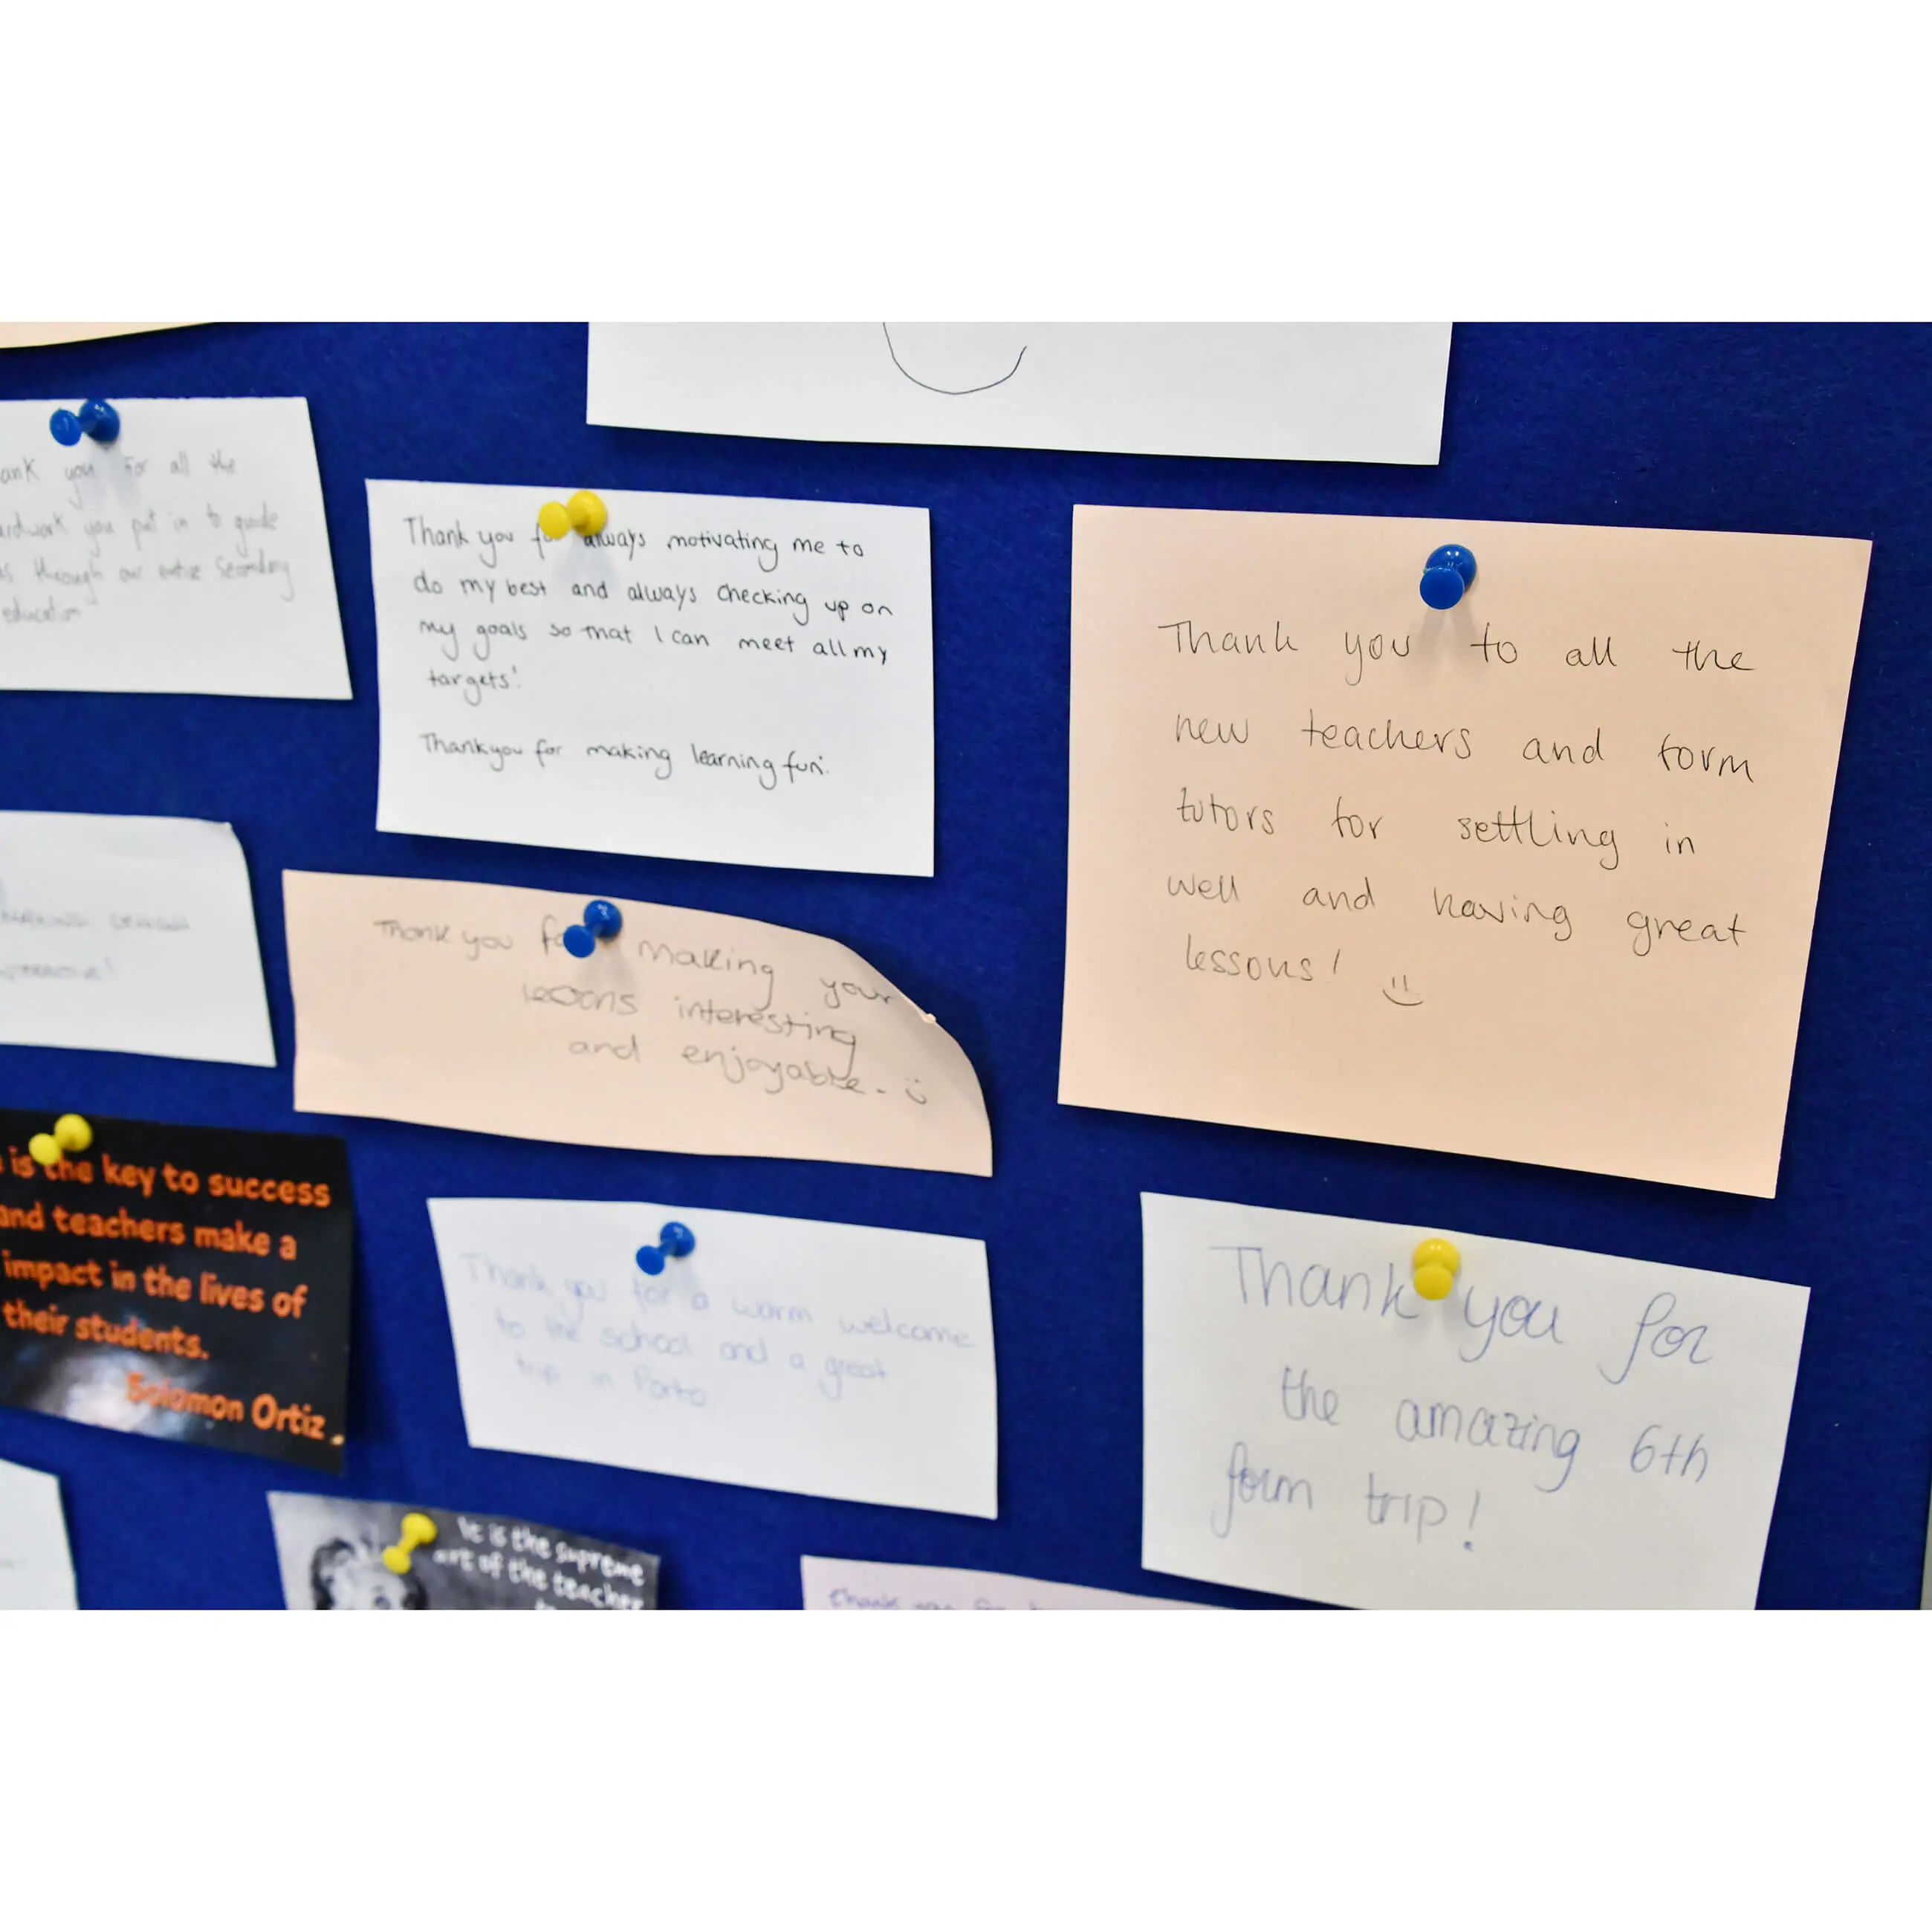 ank you for all the
ardwork you put in to guide
us through our entire Secondary
education
Thank you for always motivating me to
do my best and always checking up on
my goals so that I can meet all my
targets!
Thankyou for making learning fun!
Thank you to all the
new teachers and form
tutors for settling in
well and having great
lessons! :)
Thank you for making your
lessons interesting
and enjoyable. :)
is the key to success
and teachers make a
impact in the lives of
their students.
Solomon Ortiz.
Thank you for a warm welcome
to the school and a great
trip in Porto
Thank you for
the amazing 6th
form trip!
It is the supreme
art of the teacher
Thank you for